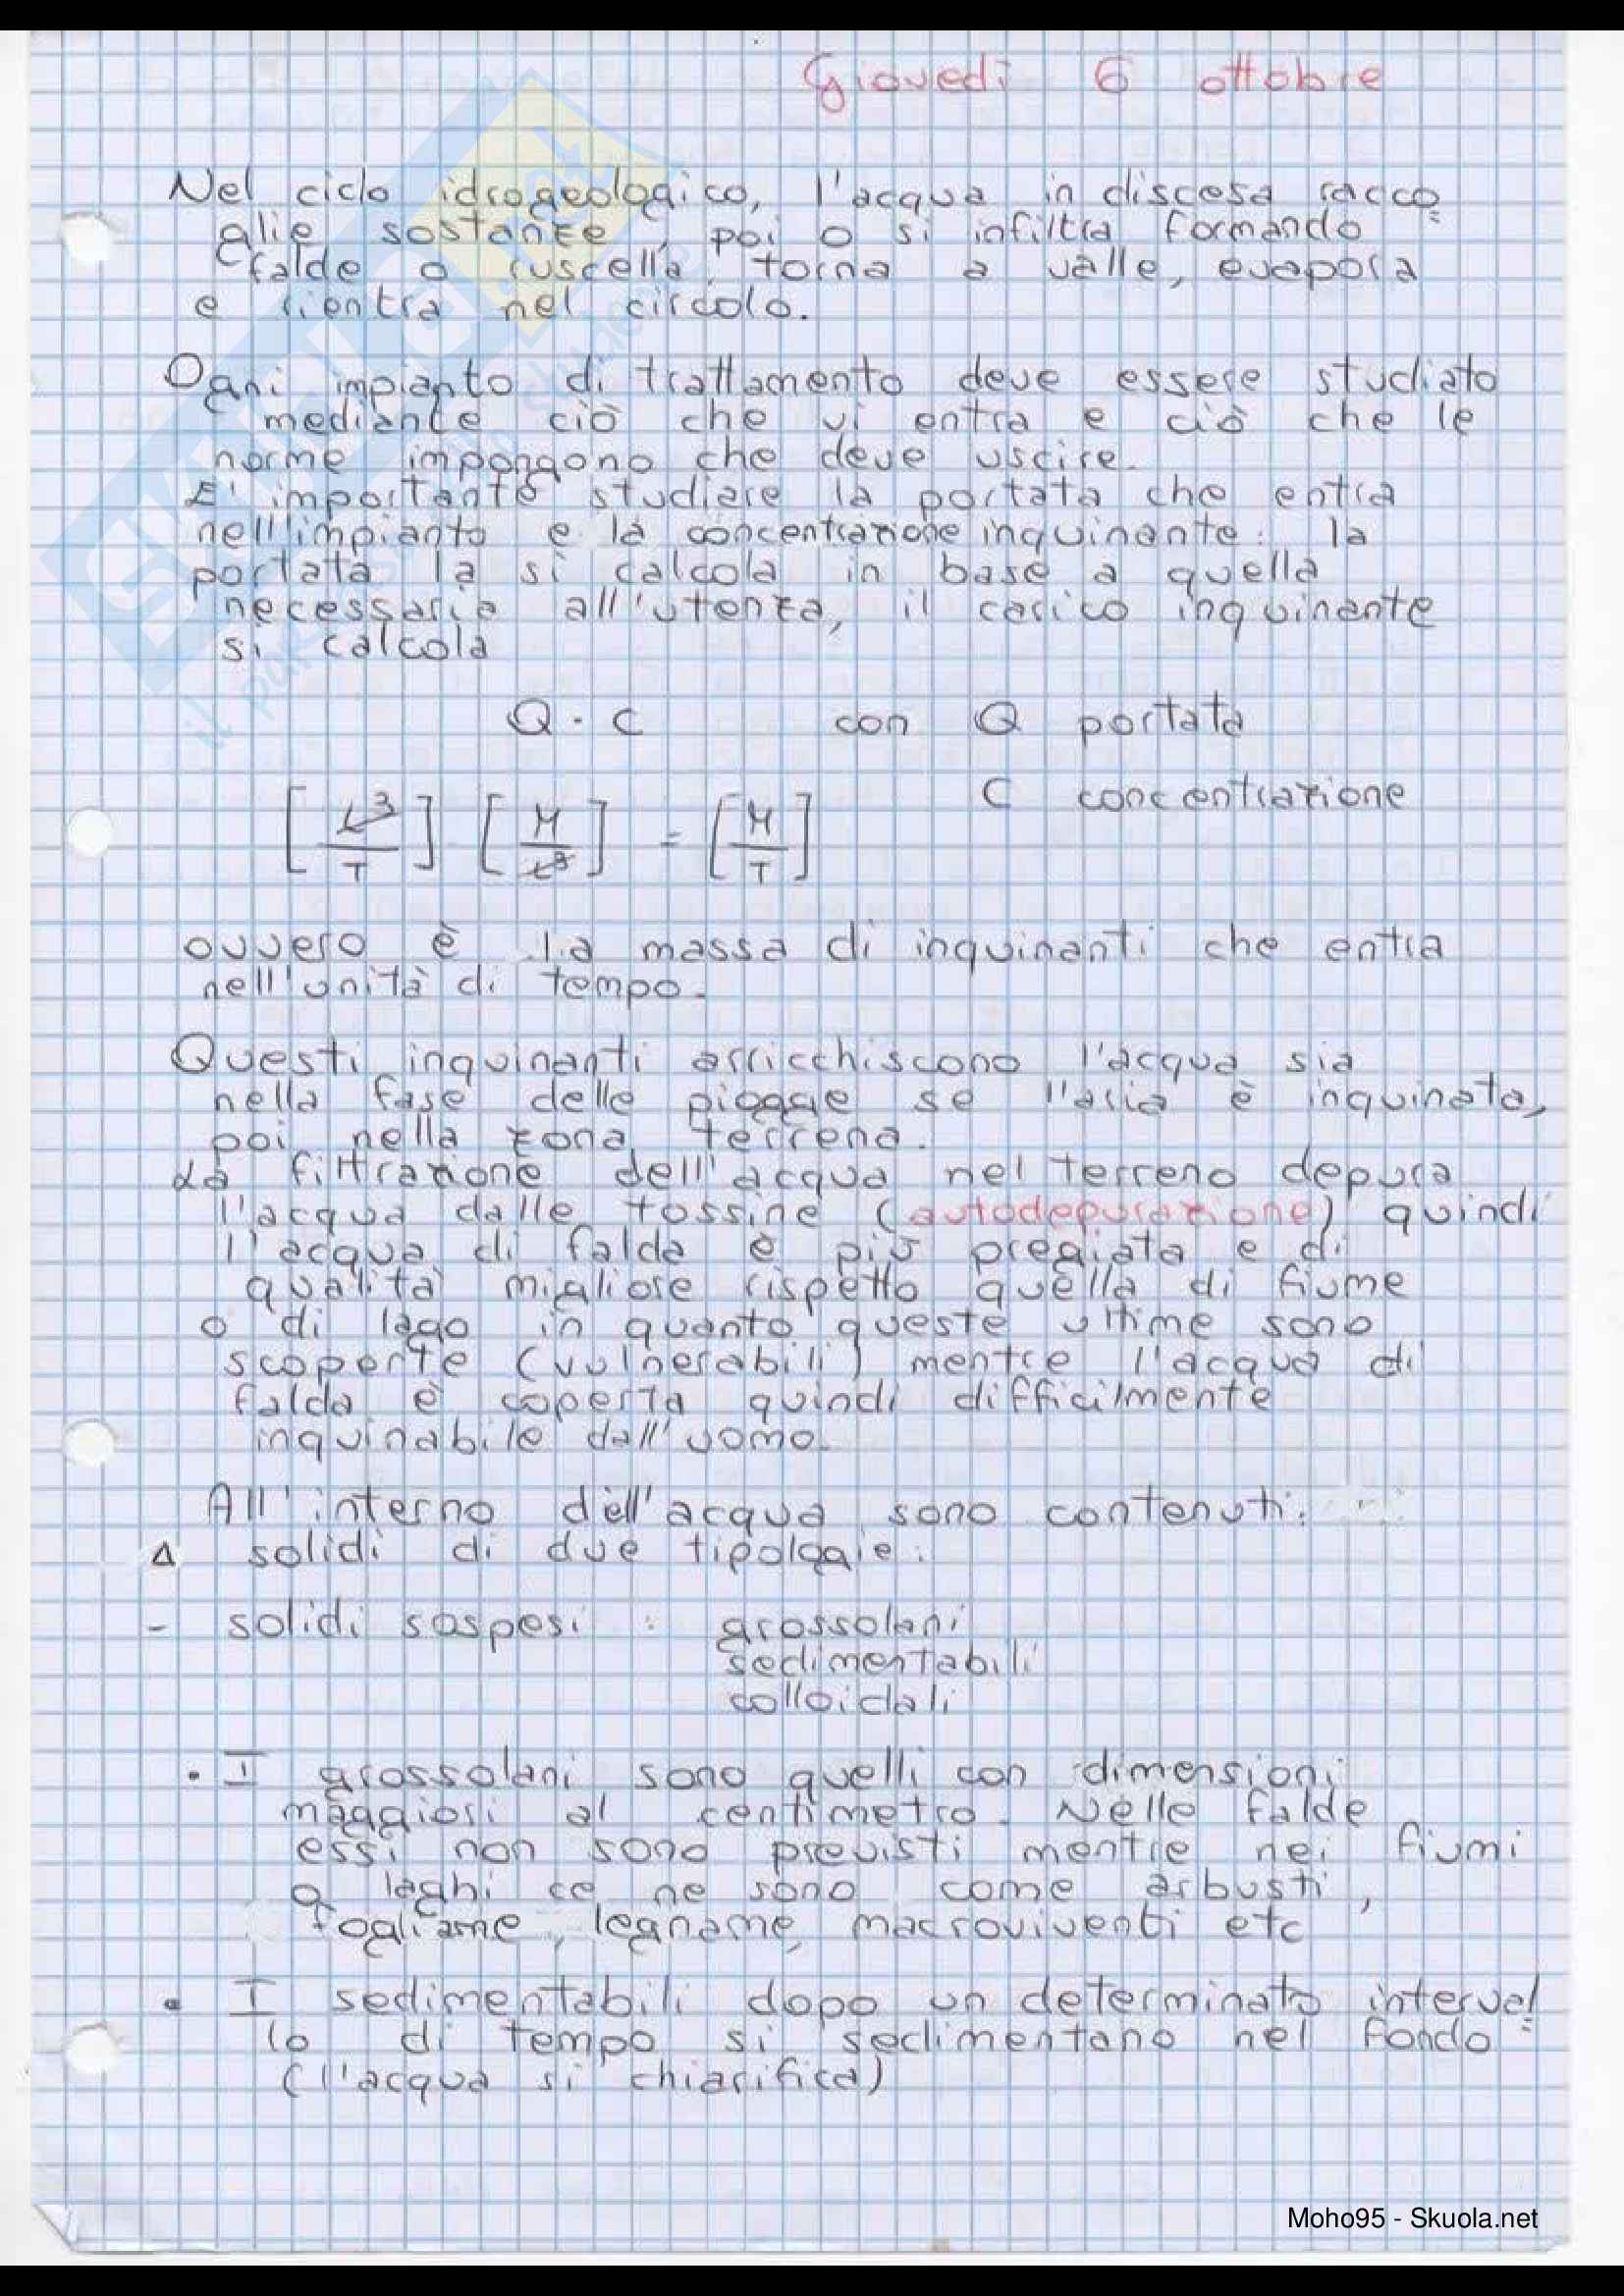 Giovedì 6 ottobre
Nel ciclo idrogeologico, l'acqua in discesa racco=
glie sostanze, poi o si infiltra formando
falde o ruscella, torna a valle, evapora
e rientra nel circolo.
Ogni impianto di trattamento deve essere studiato
mediante ciò che vi entra e ciò che le
norme impongono che deve uscire.
E' importante studiare la portata che entra
nell'impianto e la concentrazione inquinante: la
portata la si calcola in base a quella
necessaria all'utenza, il carico inquinante
si calcola
Q · C con Q portata
C concentrazione
[L³/T] [M/L³] = [M/T]
ovvero è la massa di inquinanti che entra
nell'unità di tempo.
Questi inquinanti arricchiscono l'acqua sia
nella fase delle piogge se l'aria è inquinata,
poi nella zona terrena.
La filtrazione dell'acqua nel terreno depura
l'acqua dalle tossine (autodepurazione) quindi
l'acqua di falda è più pregiata e di
qualità migliore rispetto quella di fiume
o di lago in quanto queste ultime sono
scoperte (vulnerabili) mentre l'acqua di
falda è coperta quindi difficilmente
inquinabile dall'uomo.
All'interno dell'acqua sono contenuti:
Δ solidi di due tipolgaie:
- solidi sospesi : grossolani
sedimentabili
colloidali
• I grossolani sono quelli con dimensioni
maggiori al centimetro. Nelle falde
essi non sono previsti mentre nei fiumi
o laghi ce ne sono come arbusti,
fogliame, legname, macroviventi etc
• I sedimentabili dopo un determinato interval=
lo di tempo si sedimentano nel fondo
(l'acqua si chiarifica)
Moho95 - Skuola.net